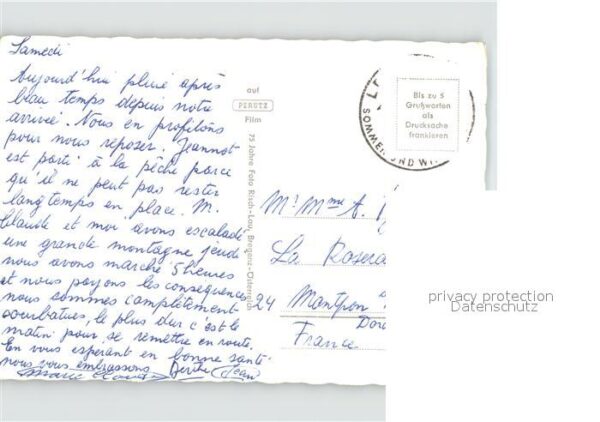 Samedi
Aujourd'hui pluie après
beau temps depuis notre
arrivée. Nous en profitons
pour nous reposer. Jeannot
est parti à la pêche parce
qu'il ne peut pas rester
longtemps en place. M.
Claude et moi avons escaladé
une grande montagne jeudi
nous avons marché 5 heures
et nous payons les conséquences
nous sommes complètement
courbatues, le plus dur c'est le
matin pour se remettre en route.
En vous espérant en bonne santé
nous vous embrassons Berthe Jean
Marie Claude
auf
PERUTZ
Film
75 Jahre Foto Risch-Lau, Bregenz-Österreich
SOMMER UND W
Bis zu 5
Grußworten
als
Drucksache
frankieren
Mr Mme A.
La Rosera
24 Montpon
Dor
France
privacy protection
Datenschutz